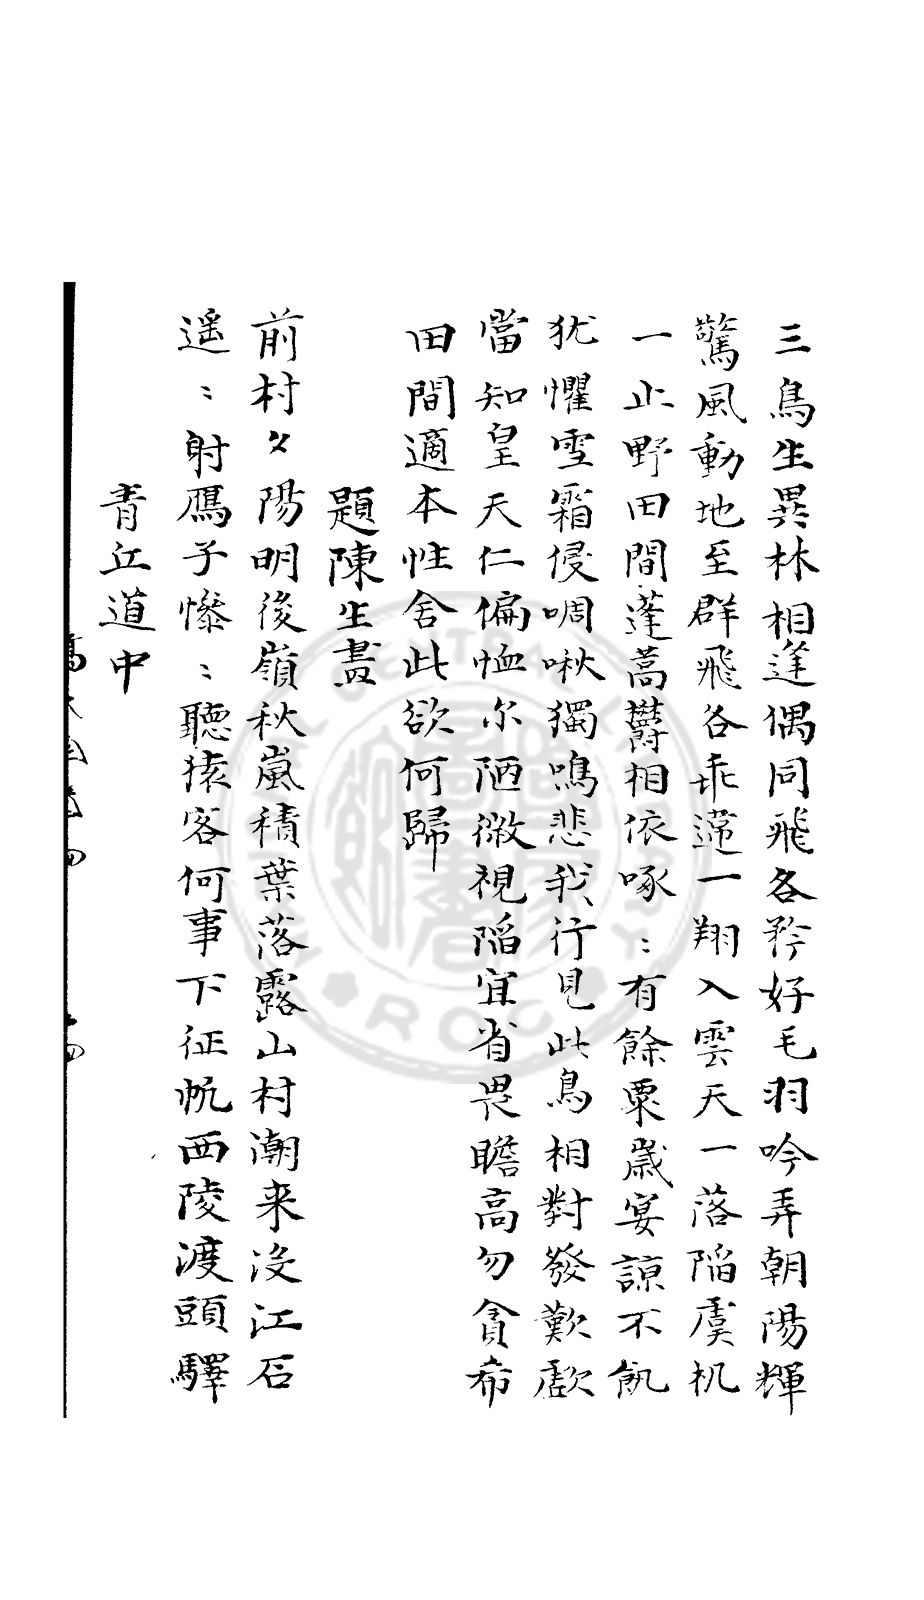 三鳥生異林相逢偶同飛各矜好毛羽吟弄朝陽輝
驚風動地至群飛各乖違一翔入雲天一落陷虞机
一止野田間蓬蒿欝相依啄〻有餘粟歲宴諒不飢
犹懼雪霜侵啁啾獨鳴悲我行見此鳥相對發歎歔
當知皇天仁偏恤尔陋微視陷宜省畏瞻高勿貪希
田間適本性舍此欲何歸
題陳生畫
前村夕陽明後嶺秋嵐積葉落露山村潮来没江石
遥〻射鴈子慘〻聽猿客何事下征帆西陵渡頭驛
青江道中